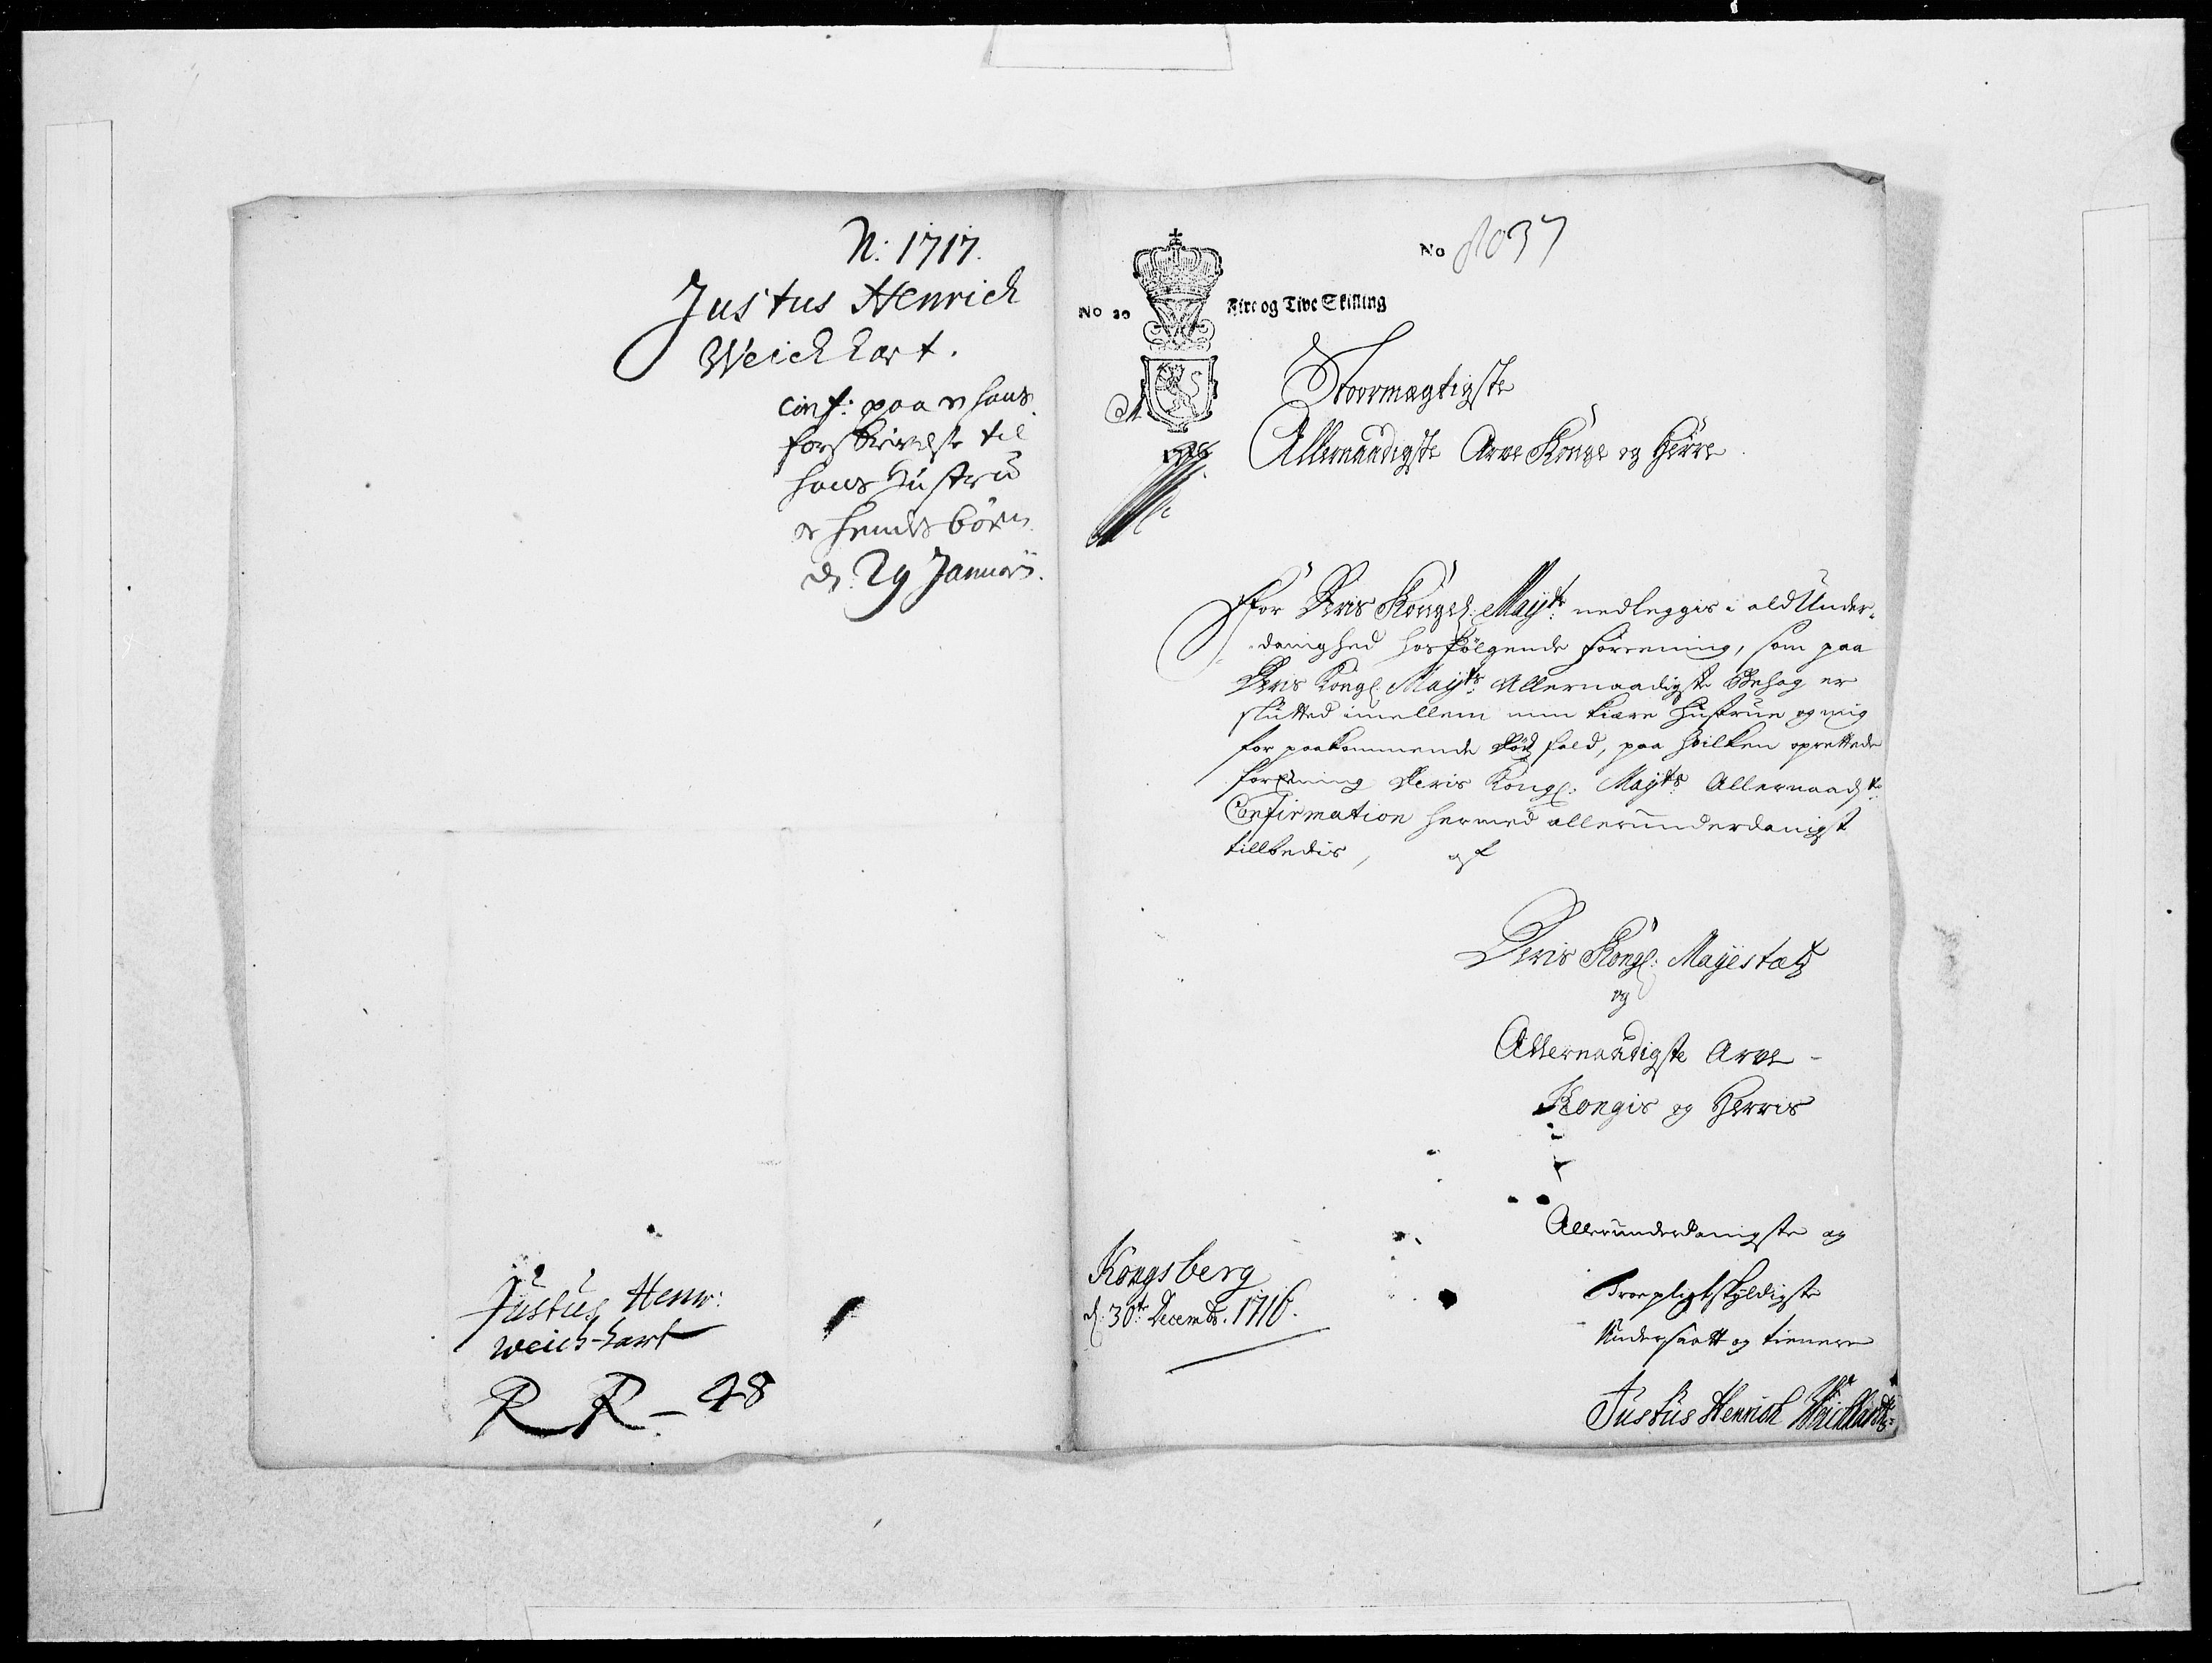 N: 1717.
Justus Henrich
Weichhart.
Conf: paa en hans
forskrivelse til
hans Hustru
og hendes børn
d: 29 Januarii.
Justus Henr:
Weich-hart
R R - 48
No 8037
No 20 Fire og Tive Skilling
1716
Stoormægtigste
Allernaadigste Arve Konge og Herre
For Deris Kongel: Mayts: nedleggis i all Under-
danighed hosfølgende Foreening, som paa
Deris Kongl: Mayts: Allernaadigste Behag er
slutted imellem min kiære Hustrue og mig
for paakommende dødsfald, paa hvilken oprettede
foreening Deris Kongl: Mayts: Allernaadste
Confirmation hermed allerunderdanigst
tillbedis, af
Deris Kongl: Mayestætz
og
Allernaadigste Arve-
Kongis og Herris
Allerunderdanigste og
Troepligtskyldigste
Undersaatt og tienere
Justus Henrich Weichhardt
Kongsberg
d: 30te Decembr. 1716.